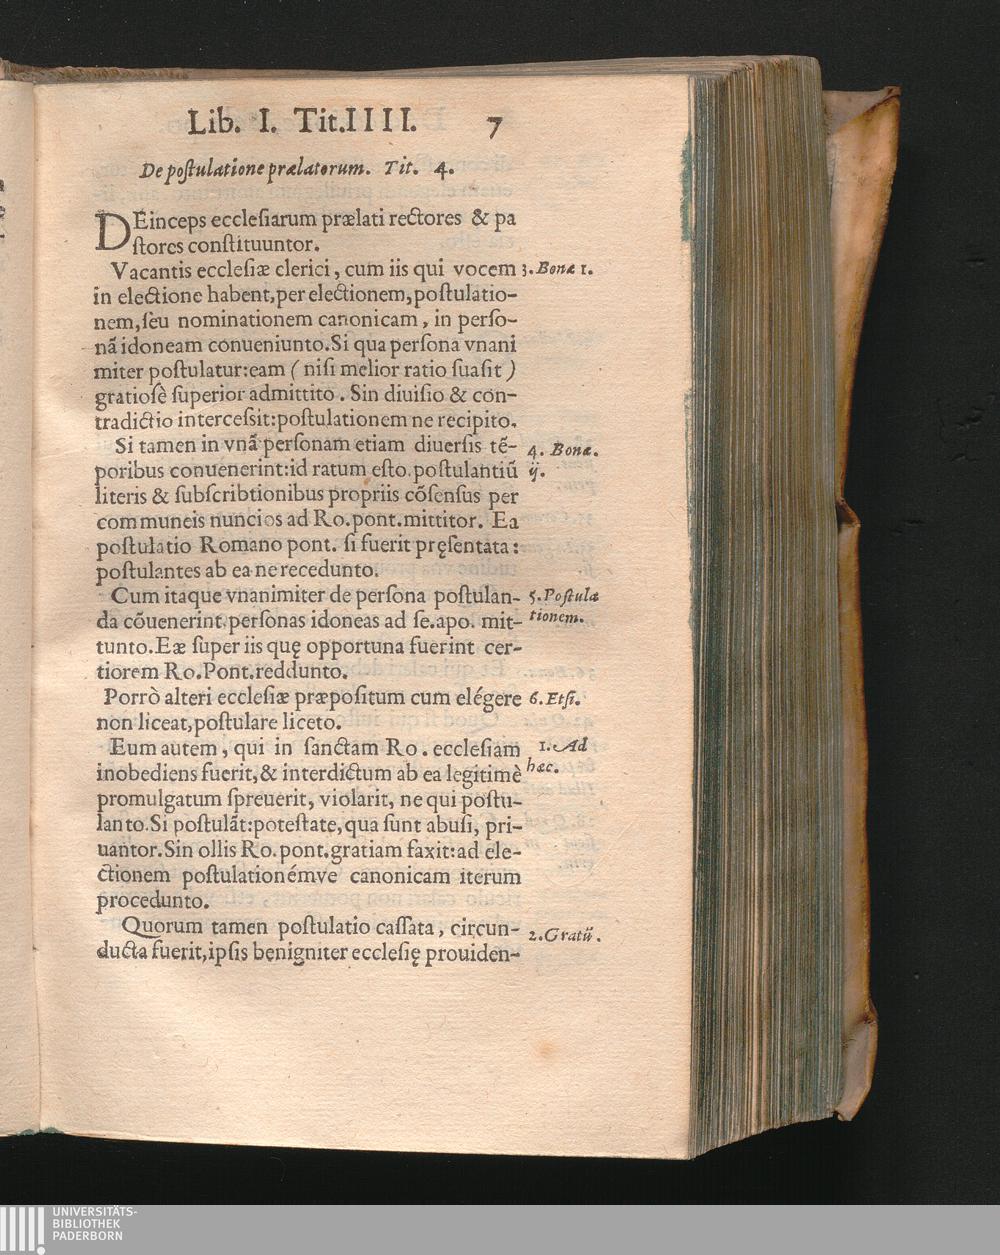 Lib. I. Tit.IIII. 7
De poſtulatione prælatorum. Tit. 4.
DEinceps eccleſiarum prælati rectores & pa
ſtores conſtituuntor.
Vacantis eccleſiæ clerici, cum iis qui vocem
3. Bonæ 1.
in electione habent, per electionem, poſtulatio-
nem, ſeu nominationem canonicam, in perſo-
nā idoneam conueniunto. Si qua perſona vnani
miter poſtulatur: eam (niſi melior ratio ſuaſit)
gratioſè ſuperior admittito. Sin diuiſio & con-
tradictio interceſsit: poſtulationem ne recipito.
Si tamen in vnā perſonam etiam diuerſis tē-
4. Bonæ.
poribus conuenerint: id ratum eſto. poſtulantiū
ij.
literis & ſubſcribtionibus propriis cōſenſus per
communeis nuncios ad Ro. pont. mittitor. Ea
poſtulatio Romano pont. ſi fuerit pręſentata:
poſtulantes ab ea ne recedunto.
Cum itaque vnanimiter de perſona poſtulan-
5. Poſtula
da cōuenerint, perſonas idoneas ad ſe. apo. mit-
tionem.
tunto. Eæ ſuper iis quę opportuna fuerint cer-
tiorem Ro. Pont. reddunto.
Porrò alteri eccleſiæ præpoſitum cum elégere
6. Etſi.
non liceat, poſtulare liceto.
Eum autem, qui in ſanctam Ro. eccleſiam
1. Ad
inobediens fuerit, & interdictum ab ea legitimè
hæc.
promulgatum ſpreuerit, violarit, ne qui poſtu-
lanto. Si poſtulāt: poteſtate, qua ſunt abuſi, pri-
uantor. Sin ollis Ro. pont. gratiam faxit: ad ele-
ctionem poſtulationémve canonicam iterum
procedunto.
Quorum tamen poſtulatio caſſata, circun-
2. Gratū.
ducta fuerit, ipſis benigniter eccleſię prouiden-
UNIVERSITÄTS-
BIBLIOTHEK
PADERBORN